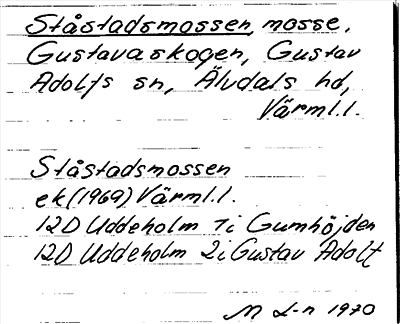 Ståstadsmossen, mosse,
Gustavaskogen, Gustav
Adolfs sn, Älvdals hd,
Värml.l.
Ståstadsmossen
ek (1969) Värml.l.
12D Uddeholm 1i Gumhöjden
12D Uddeholm 2i Gustav Adolf
M L-n 1970